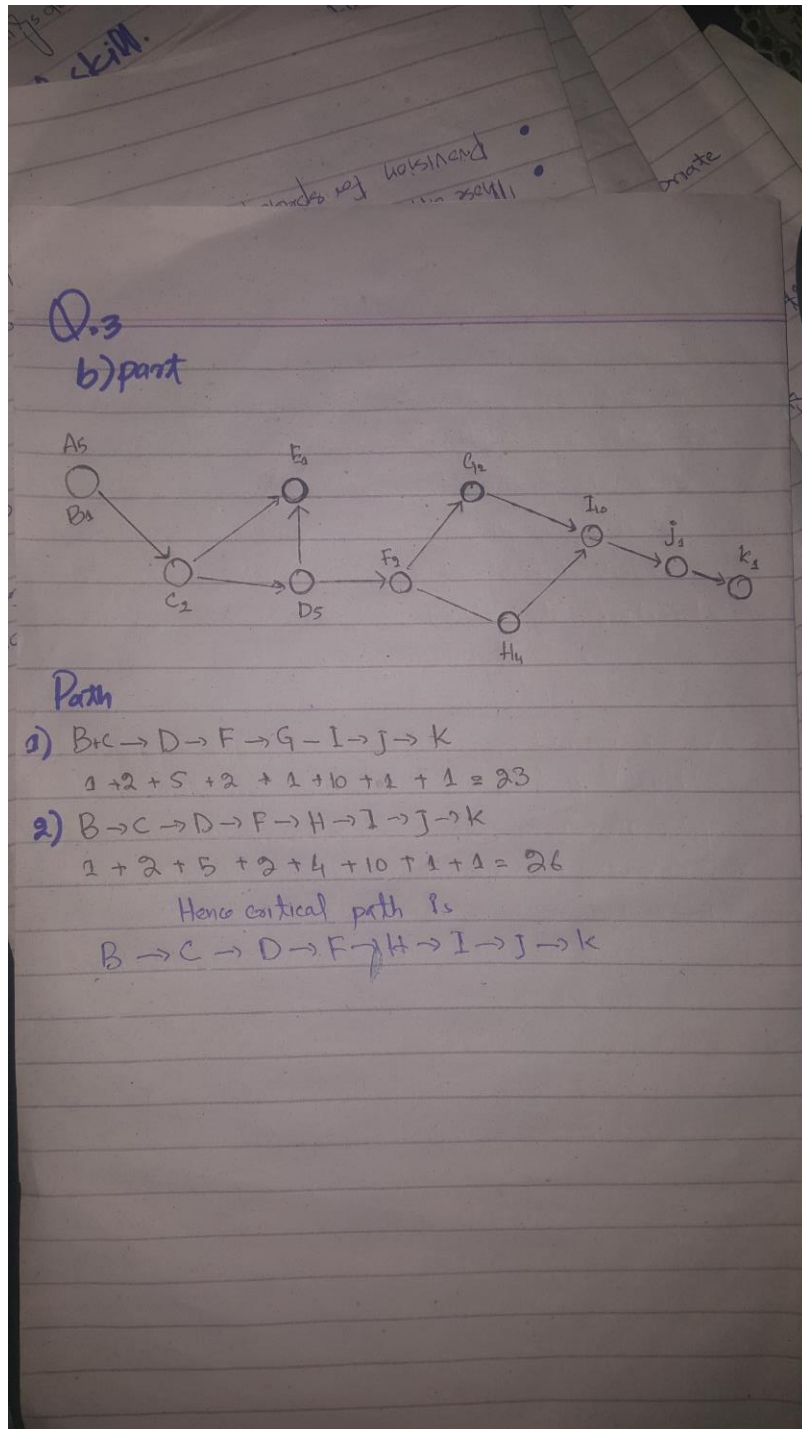 skill.
provision for
These
Q.3
b) part
A5
B1
C2
E1
D5
F2
G2
H4
I10
j1
k1
Path
1) B+C → D → F → G – I → J → K
1 + 2 + 5 + 2 + 1 + 10 + 1 + 1 = 23
2) B → C → D → F → H → I → J → K
1 + 2 + 5 + 2 + 4 + 10 + 1 + 1 = 26
Hence critical path is
B → C → D → F → H → I → J → K